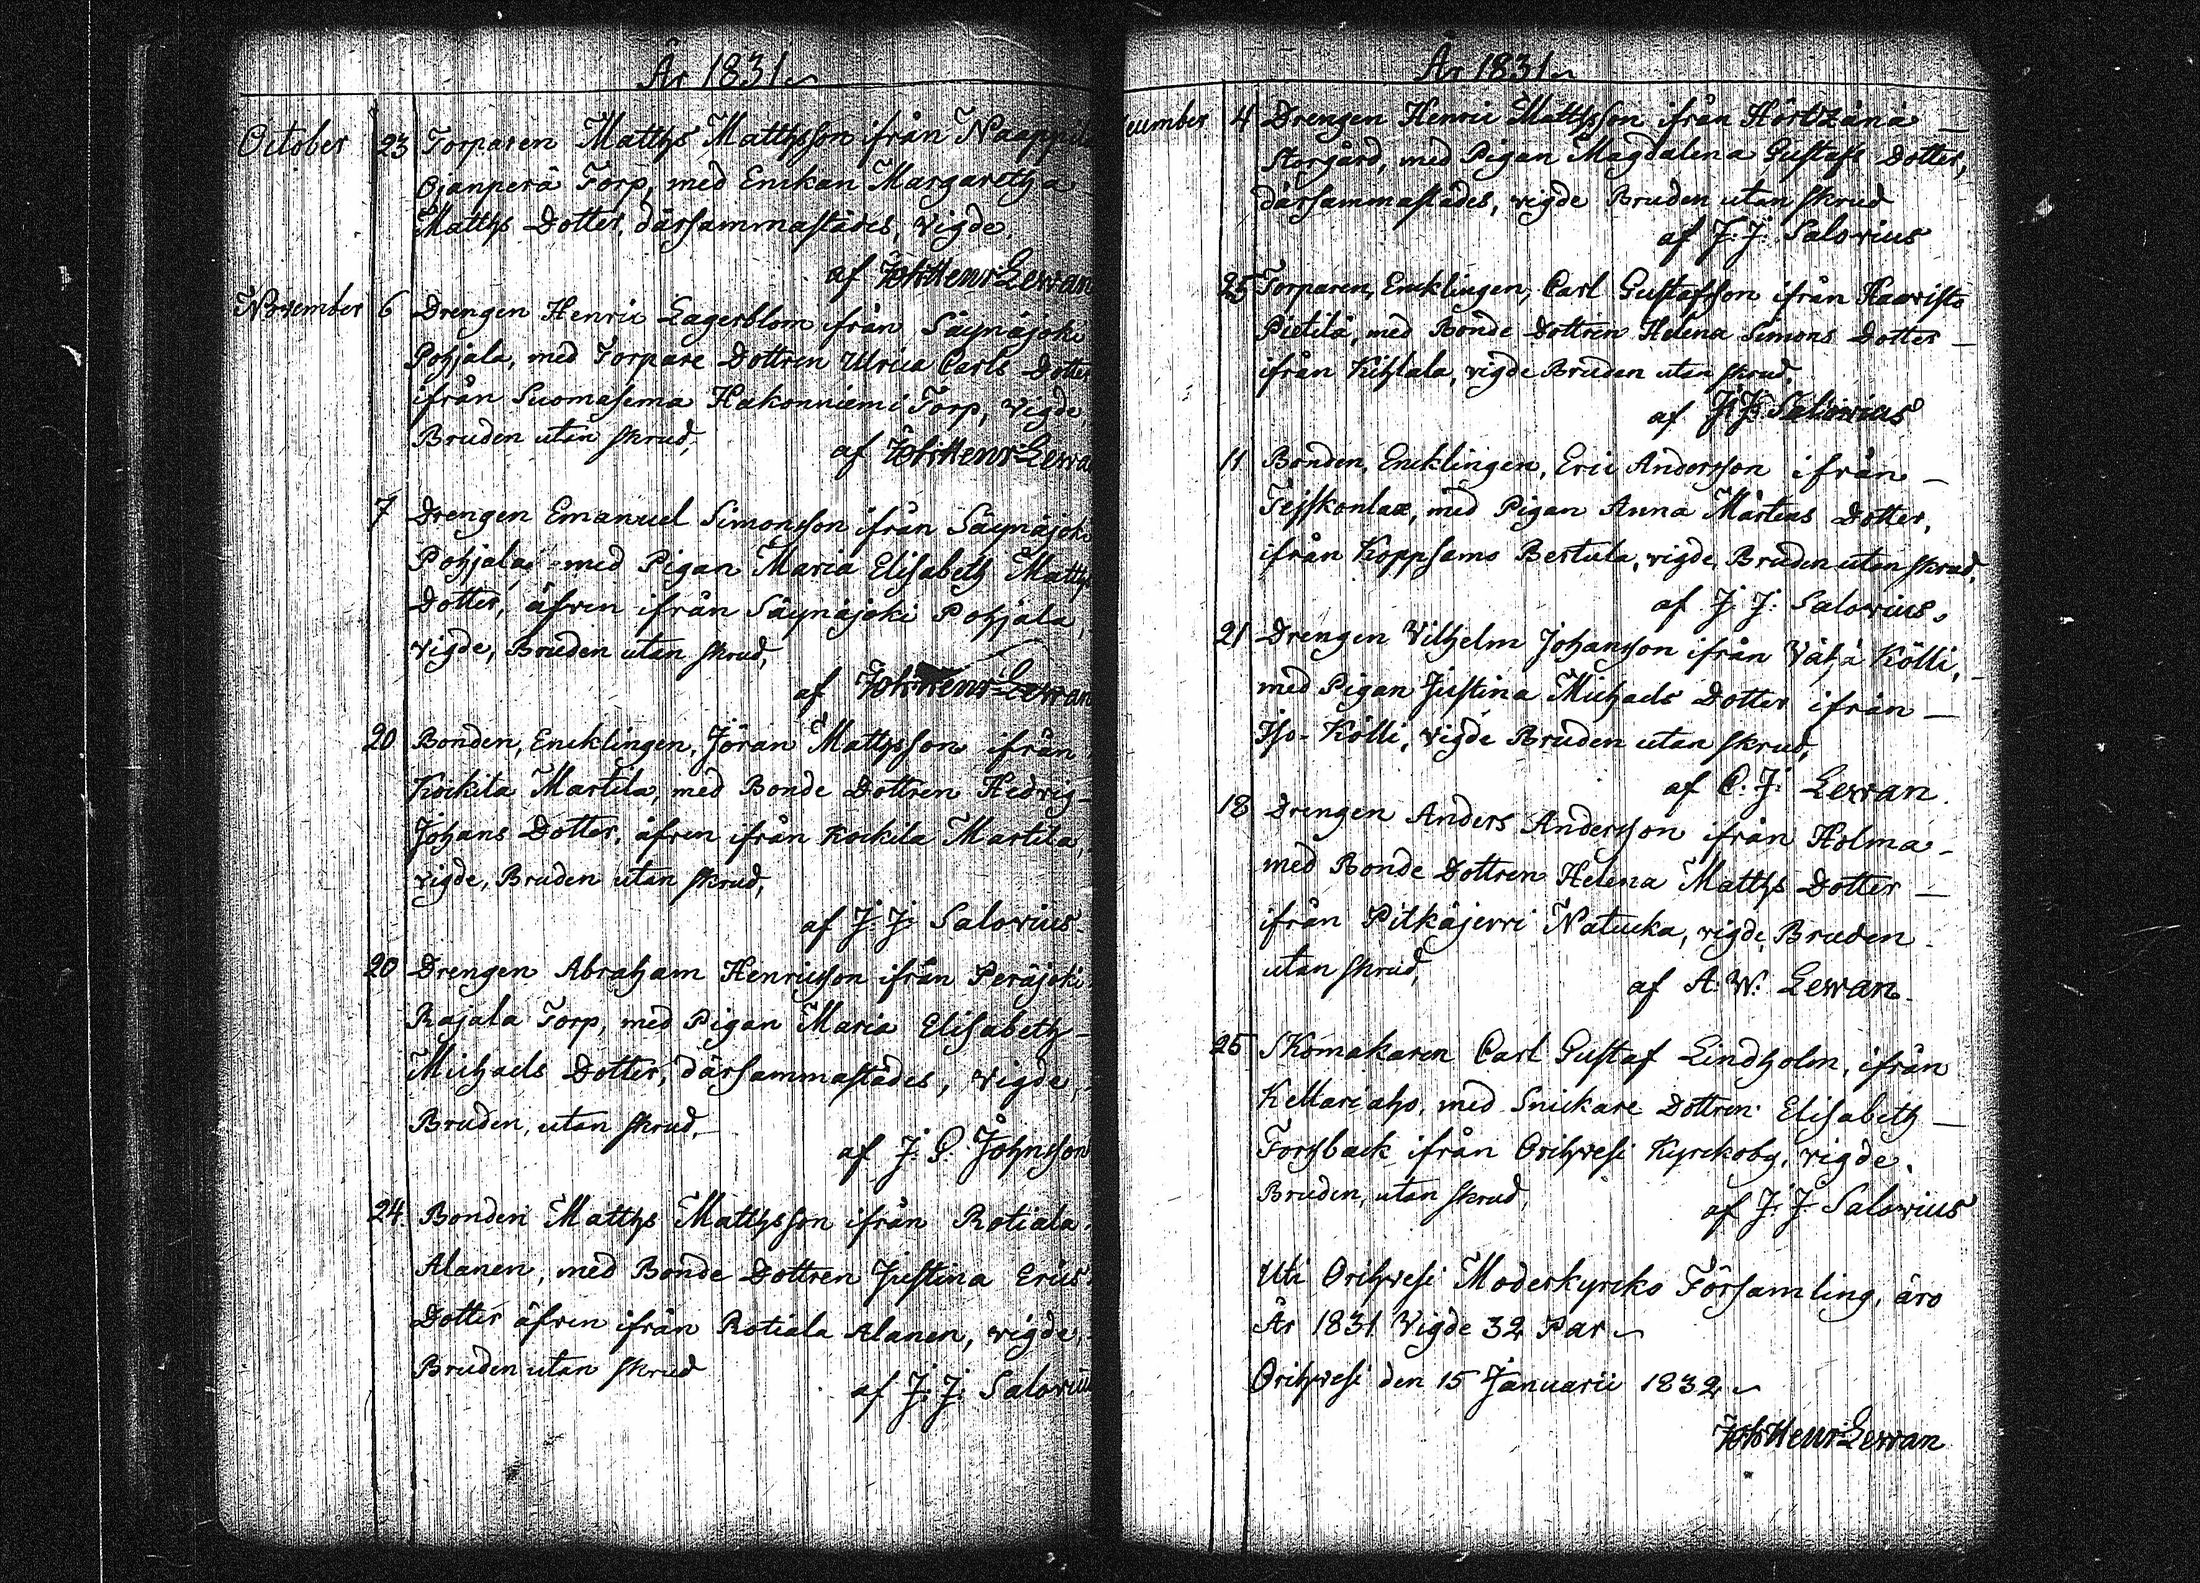 År 1831
October 23 Torparen Matths Matthsson ifrån Naappila
Ojanperä Torp, med Enckan Margaretha
Matths Dotter, därsammastädes, vigde,
af Joh: Henr: Lewan
November 6 Drengen Henric Lagerblom ifrån Säynäjoki
Pohjala, med Torpare Dottren Ulrica Carls Dotter
ifrån Suomasema Hakonniemi Torp, vigde,
Bruden utan skrud,
af Joh: Henr: Lewa
7 Drengen Emanuel Simonsson ifrån Säynäjoki
Pohjala, med Pigan Maria Elisabeth Matths
Dotter, äfven ifrån Säynäjoki Pohjala,
vigde, Bruden utan skrud,
af Joh: Henr: Lewan
20 Bonden, Encklingen, Jöran Mattsson ifrån
Kockila Martila, med Bonde Dottren Hedvig
Johans Dotter, äfven ifrån Kockila Martila,
vigde, Bruden utan skrud,
af J: J: Salovius
20 Drengen Abraham Henricsson ifrån Peräjoki
Rajala Torp, med Pigan Maria Elisabeth
Michaels Dotter, därsammastädes, vigde,
Bruden, utan skrud.
af J. G. Johnsson
24 Bonden Matths Matthsson ifrån Rotiala
Alanen, med Bonde Dottren Justina Erics
Dotter äfven ifrån Rotiala Alanen, vigde,
Bruden utan skrud
af J: J: Salovius
År 1831
ecember 4 Drengen Henric Mattsson ifrån Hörtzänä
Storgård, med Pigan Magdalena Gustafs Dotter,
därsammastädes, vigde Bruden utan skrud
af J: J: Salovius
25 Torparen, Encklingen, Carl Gustafsson ifrån Haavisto
Pietilä, med Bonde Dottren Helena Simons Dotter
ifrån Kihlala, vigde Bruden utan skrud.
af J: J: Salovius
11 Bonden, Encklingen, Eric Andersson ifrån
Tejskonlax, med Pigan Anna Mårtens Dotter,
ifrån Koppsamo Bertula, vigde, Bruden utan skrud,
af J: J: Salovius,
21 Drengen Vilhelm Johansson ifrån Vähä Kölli,
med Pigan Justina Michaels Dotter ifrån
Iso-Kölli, vigde Bruden utan skrud,
af C. J: Lewan
18 Drengen Anders Andersson ifrån Holma
med Bonde Dottren Helena Matths Dotter
ifrån Pitkäjervi Natucka, vigde, Bruden
utan skrud,
af A. W: Lewan
25 Skomakaren Carl Gustaf Lindholm, ifrån
Kellariaho, med Snickare Dottren Elisabeth
Forsback ifrån Orihvesi Kyrckoby, vigde.
Bruden, utan skrud,
af J: J: Salovius
Uti Orihvesi Moderkyrcko Församling, äro
År 1831 Vigde 32 Par
Orihvesi den 15 Januarii 1832
Joh: Henr: Lewan